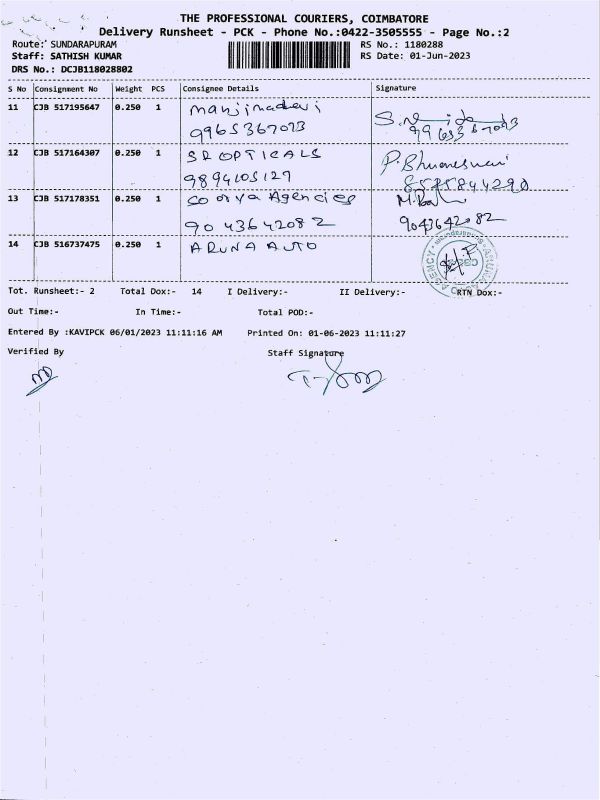 THE PROFESSIONAL COURIERS, COIMBATORE
Delivery Runsheet - PCK - Phone No.:0422-3505555 - Page No.:2
Route: SUNDARAPURAM RS No.: 1180288
Staff: SATHISH KUMAR RS Date: 01-Jun-2023
DRS No.: DCJB118028802
S No Consignment No Weight PCS Consignee Details Signature
11 CJB 517195647 0.250 1 manjinadevi
9965367073 99653 67073
12 CJB 517164307 0.250 1 SR OPTICALS P. Bhuvaneswari
9894105127 8525844290
13 CJB 517178351 0.250 1 Soorya Agencies
9043642082 9043642082
14 CJB 516737475 0.250 1 ARUNA AUTO
AGENCY
Tot. Runsheet:- 2 Total Dox:- 14 I Delivery:- II Delivery:- RTN Dox:-
Out Time:- In Time:- Total POD:-
Entered By :KAVIPCK 06/01/2023 11:11:16 AM Printed On: 01-06-2023 11:11:27
Verified By Staff Signature